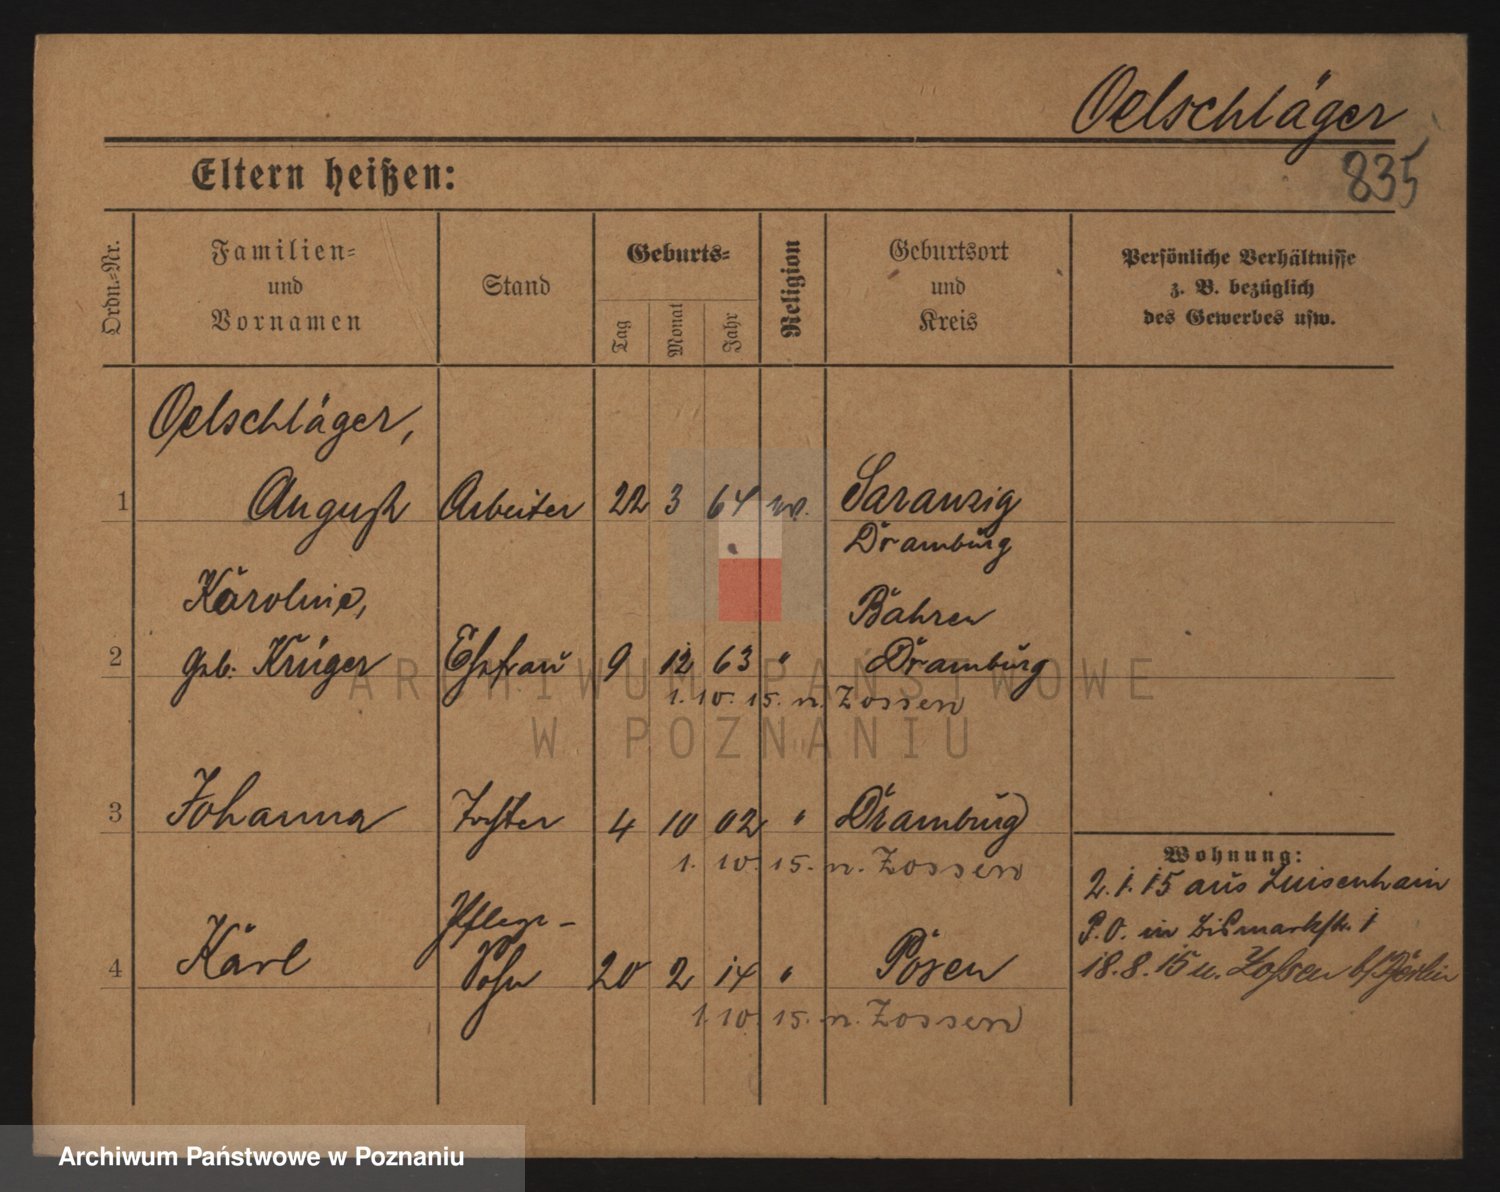 Oelschläger
835
Eltern heißen:
Ordn.-Nr.
Familien-
und
Vornamen
Stand
Geburts-
Tag
Monat
Jahr
Religion
Geburtsort
und
Kreis
Persönliche Verhältnisse
z. B. bezüglich
des Gewerbes usw.
Oelschläger,
1 August Arbeiter 22 3 64 Saranzig
Dramburg
Karoline, Bahren
2 geb. Krüger Ehefrau 9 12 63 " Dramburg
1. 10. 15. n. Zossen
3 Johanna Tochter 4 10 02 " Dramburg
1. 10. 15. n. Zossen
Wohnung:
2.1.15 aus Luisenhain
P.O. in Bismarckstr. 1
18.8.15 n. Zossen b/Berlin
Pflege-
4 Karl Sohn 20 2 14 " Posen
1. 10. 15. n. Zossen
ARCHIWUM PAŃSTWOWE
W POZNANIU
Archiwum Państwowe w Poznaniu